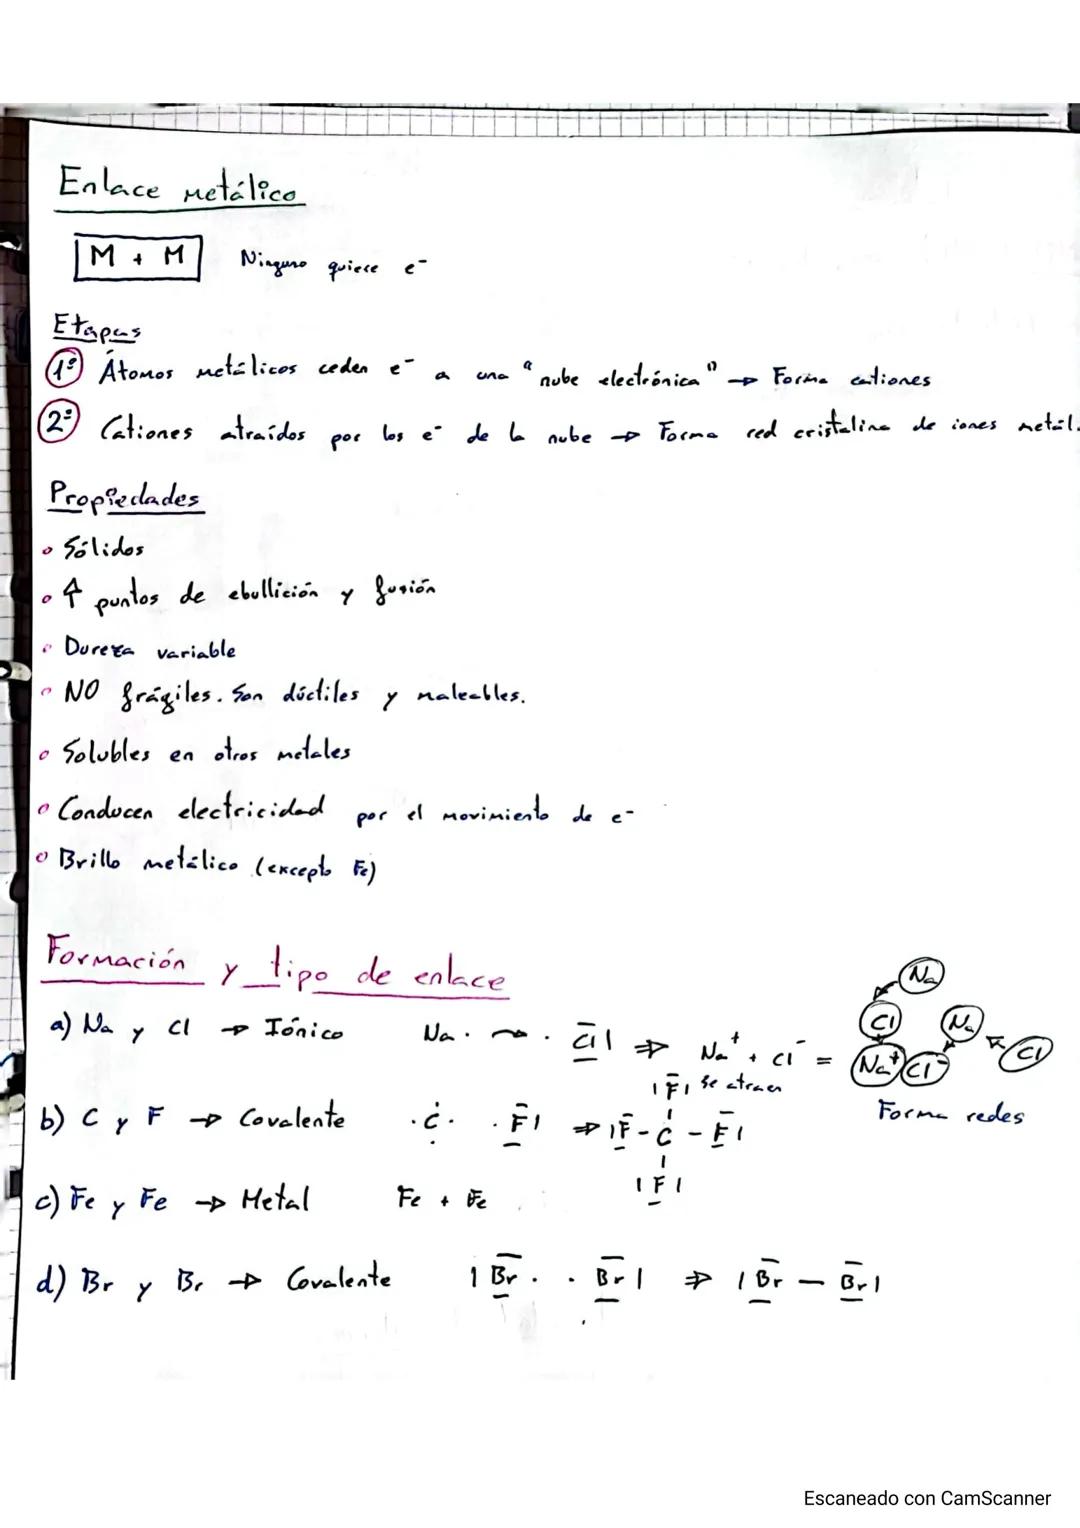 Enlace metálico
M + M Ninguno quiere e⁻
Etapas
1º Átomos metálicos ceden e⁻ a una "nube electrónica" → Forma cationes
2º Cationes atraídos por los e⁻ de la nube → Forma red cristalina de iones metál.
Propiedades
• Sólidos
• ↑ puntos de ebullición y fusión
• Dureza variable
• NO frágiles. Son dúctiles y maleables.
• Solubles en otros metales
• Conducen electricidad por el movimiento de e⁻
• Brillo metálico (excepto Fe)
Formación y tipo de enlace
Na
Cl Na Cl
a) Na y Cl → Iónico Na· · Cl| ⇒ Na⁺ + Cl⁻ = Na⁺ Cl⁻
se atraen
Forma redes
|F|
b) C y F → Covalente ·C· ·F| ⇒ |F - C - F|
|F|
c) Fe y Fe → Metal Fe + Fe
d) Br y Br → Covalente |Br· ·Br| ⇒ |Br - Br|
Escaneado con CamScanner